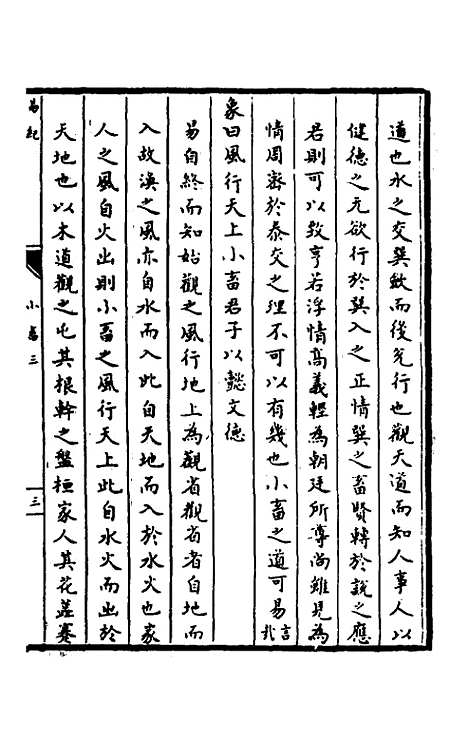 道也水之交巽斂而後光行也觀天道而知人事人以
健德之元欲行於巽入之正情巽之畜賢轉於說之應
君則可以致亨若浮情高義輕為朝廷所尊尚雖見為
情周密於泰交之理不可以有幾也小畜之道可易言哉
象曰風行天上小畜君子以懿文德
易自終而知始觀之風行地上為觀省觀省者自地而
入故渙之風亦自水而入此自天地而入於水火也家
人之風自火出則小畜之風行天上此自水火而出於
天地也以木道觀之屯其根幹之盤桓家人其花蓋賽
易紀
小畜三
三